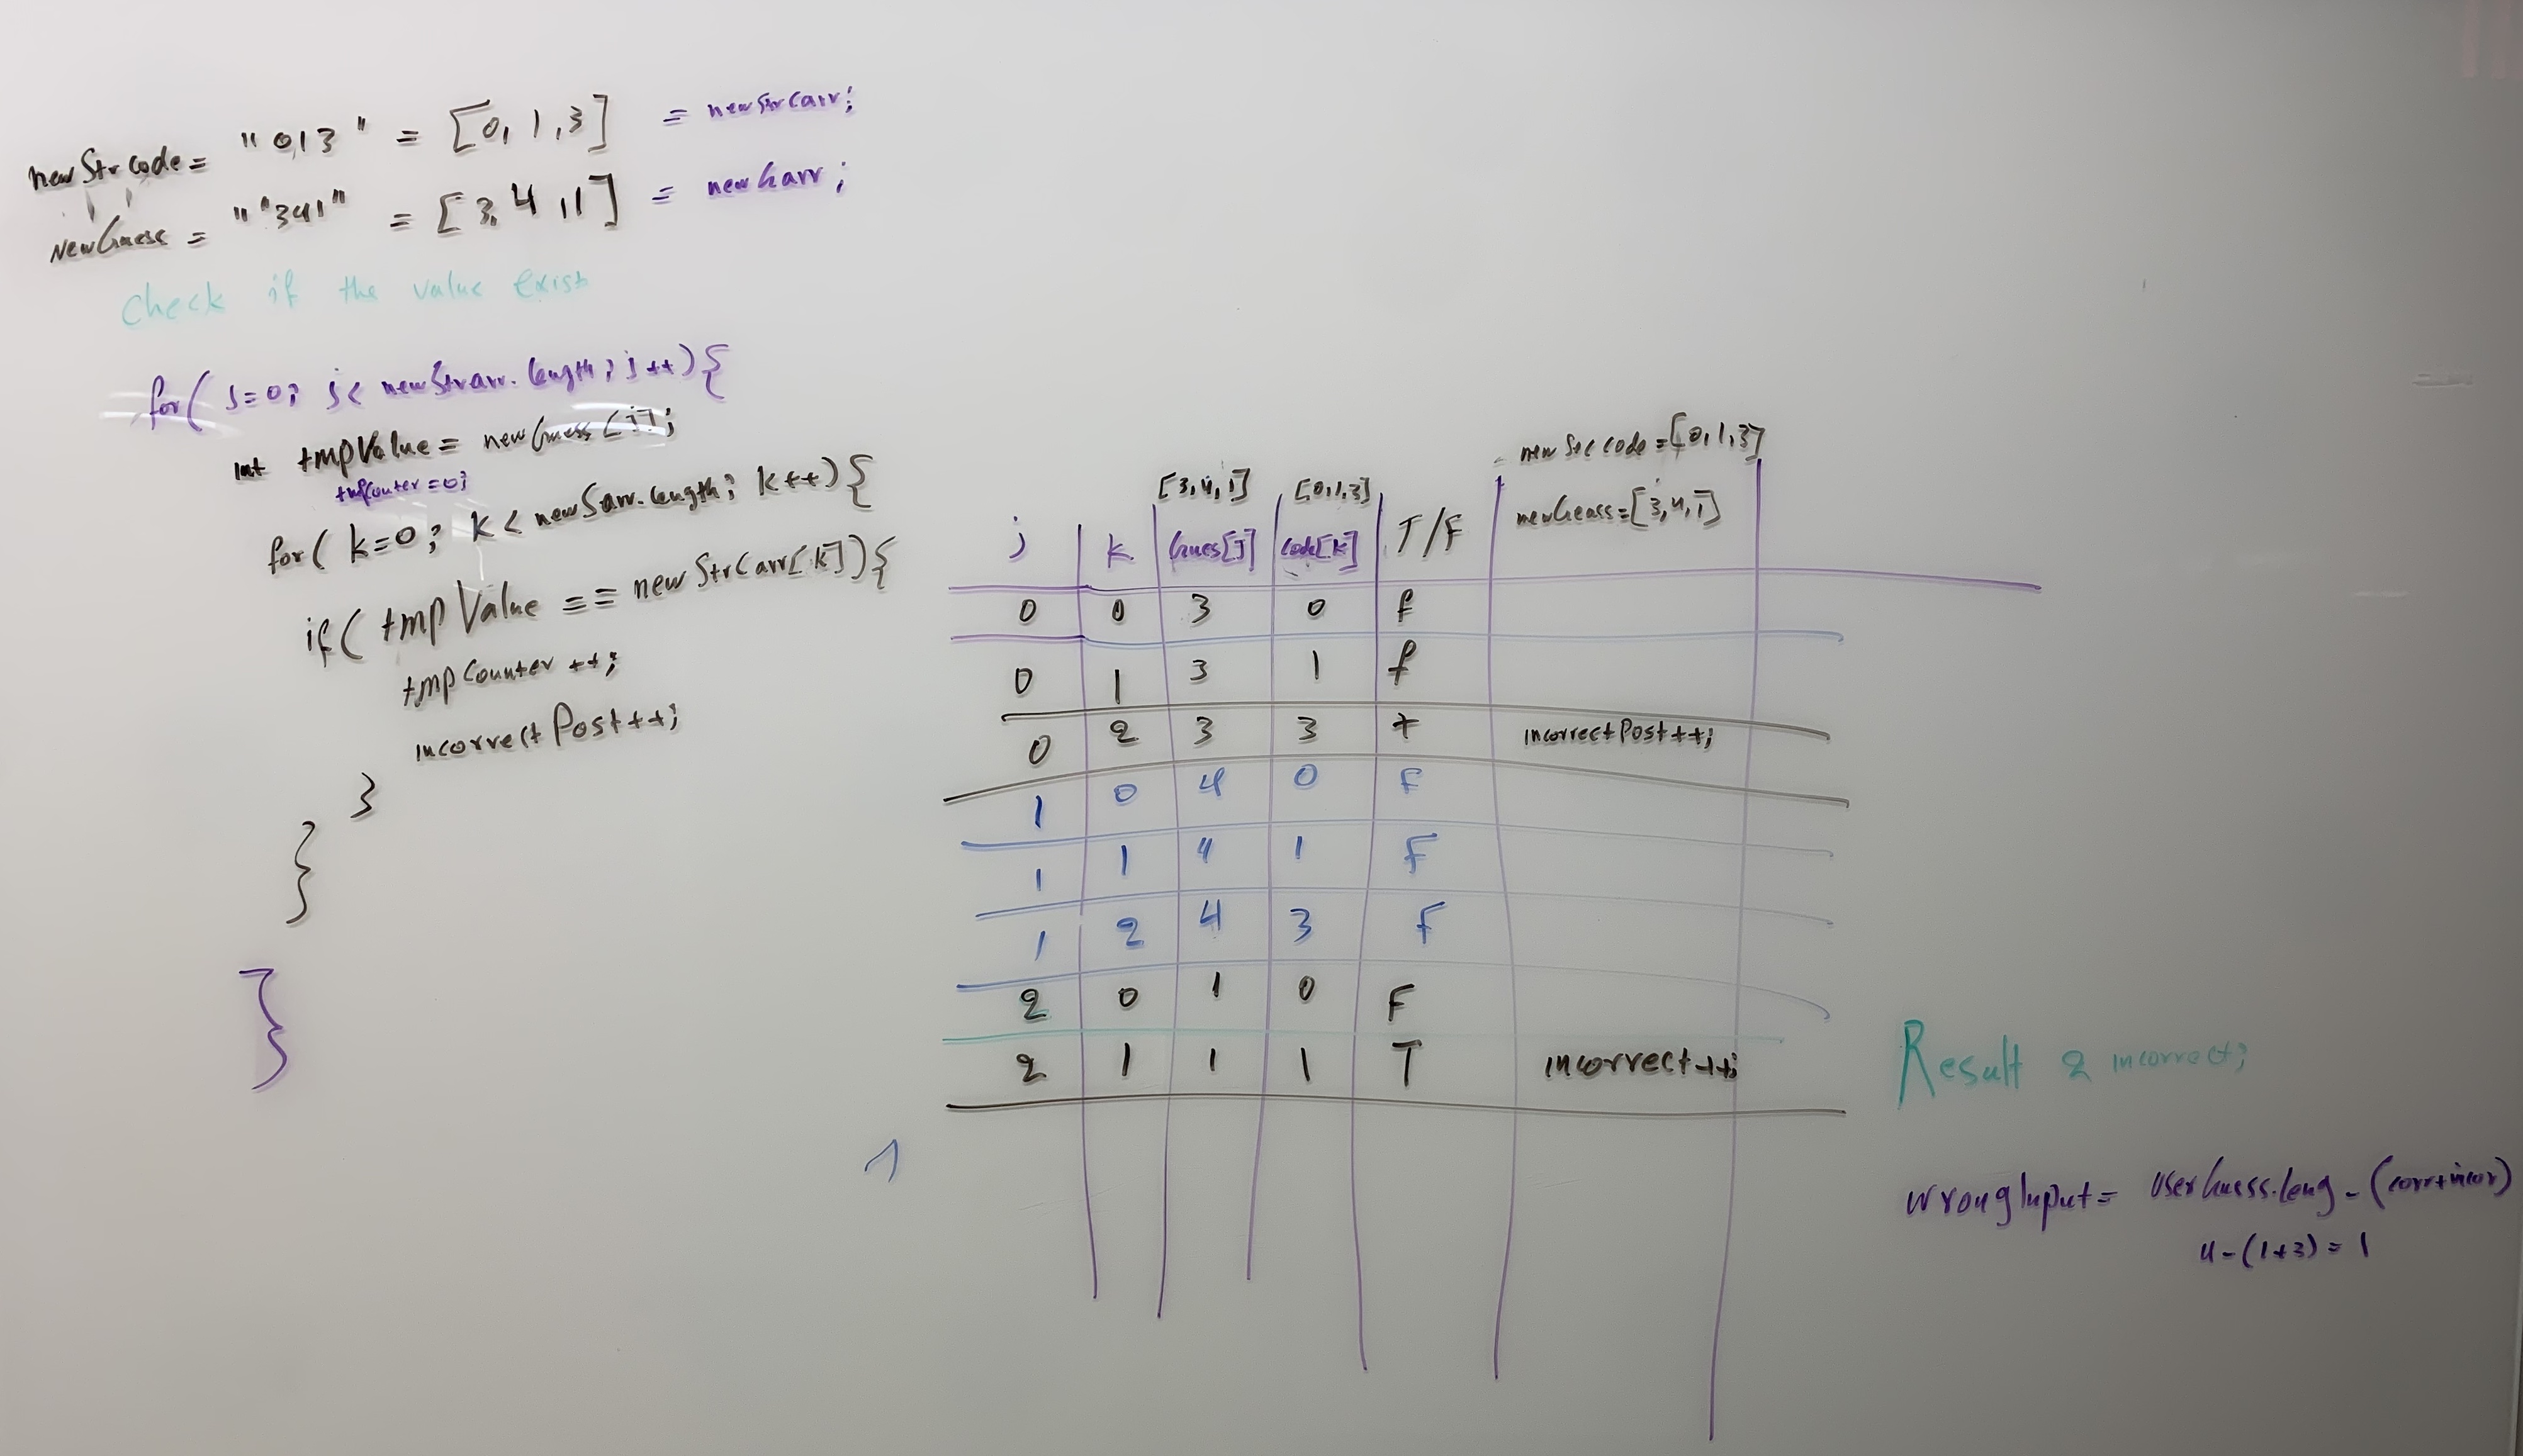 newStrcode = "013" = [0, 1, 3] = newStrCarr;
NewGuess = ""341" = [3, 4, 1] = newGarr;
Check if the value Exist
for( j=0; j< newStrarr.length; j++){
int tmpValue = newGuess[j];
tmpCounter=0;
for( k=0; k< newSarr.length; k++){
if( tmpValue == newStrCarr[k]){
tmpCounter ++;
incorrectPost++;
}
}
}
newSrccode=[0,1,3]
[3,4,1] [0,1,3] newGeass=[3,4,1]
j k Gues[j] code[k] T/F
0 0 3 0 f
0 1 3 1 f
0 2 3 3 t incorrectPost++;
1 0 4 0 F
1 1 4 1 F
1 2 4 3 F
2 0 1 0 F
2 1 1 1 T incorrect++;
Result 2 incorrect;
wrongInput = UserGuess.leng - (corr+incor)
4-(1+3) = 1